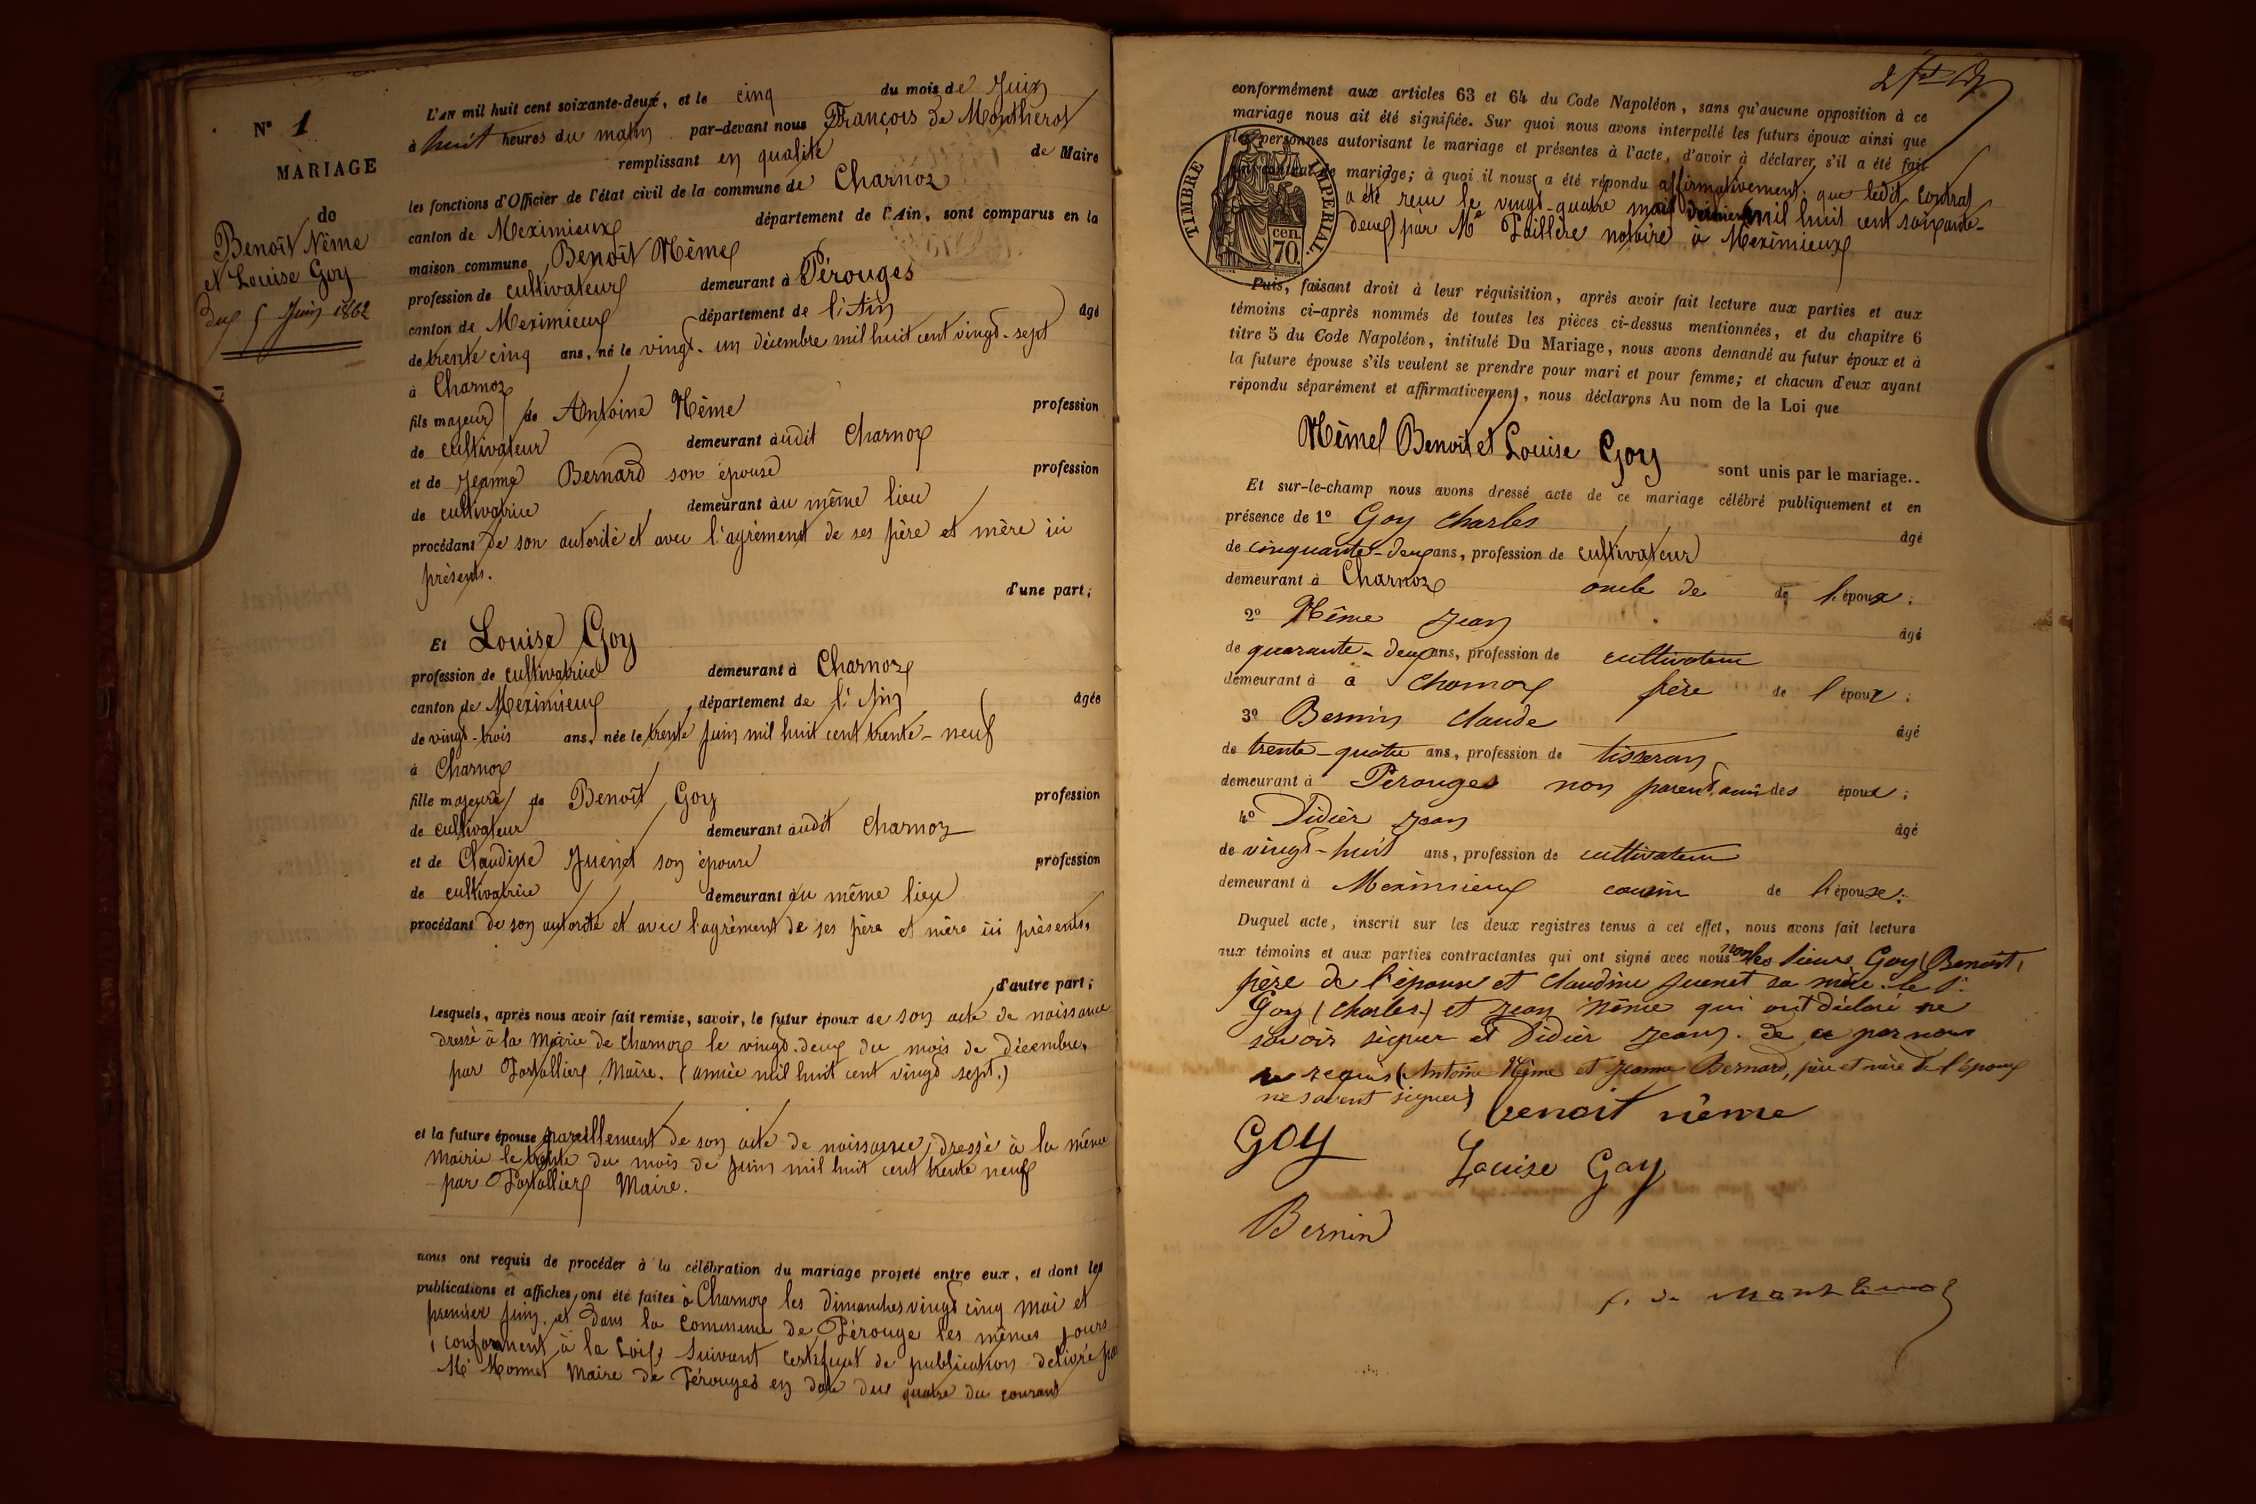 N° 1
MARIAGE
de
Benoît Nême
et Louise Goy
du 5 Juin 1862
L'AN mil huit cent soixante-deux, et le cinq du mois de Juin
à huit heures du matin par-devant nous François de Montherot
remplissant en qualité de Maire
les fonctions d'Officier de l'état civil de la commune de Charnoz
canton de Meximieux département de l'Ain, sont comparus en la
maison commune Benoît Nême
profession de cultivateur demeurant à Pérouges
canton de Meximieux département de l'Ain âgé
de trente cinq ans, né le vingt-un décembre mil huit cent vingt-sept
à Charnoz
fils majeur de Antoine Nême profession
de cultivateur demeurant audit Charnoz
et de Jeanne Bernard son épouse profession
de cultivatrice demeurant au même lieu
procédant de son autorité et avec l'agrément de ses père et mère ici
présents.
d'une part;
Et Louise Goy
profession de cultivatrice demeurant à Charnoz
canton de Meximieux département de l'Ain âgée
de vingt-trois ans, née le trente juin mil huit cent trente-neuf
à Charnoz
fille majeure de Benoît Goy profession
de cultivateur demeurant audit Charnoz
et de Claudine Juenet son épouse profession
de cultivatrice demeurant au même lieu
procédant de son autorité et avec l'agrément de ses père et mère ici présents.
d'autre part;
Lesquels, après nous avoir fait remise, savoir, le futur époux de son acte de naissance
dressé à la Mairie de Charnoz le vingt-deux du mois de Décembre,
par Portallier, Maire. (année mil huit cent vingt sept.)
et la future épouse pareillement de son acte de naissance, dressé à la même
Mairie le trente du mois de Juin mil huit cent trente neuf
par Portallier Maire.
nous ont requis de procéder à la célébration du mariage projeté entre eux, et dont les
publications et affiches ont été faites à Charnoz les dimanches vingt cinq mai et
premier juin, et dans la commune de Pérouge les mêmes jours
conforment à la Loi, suivant certificat de publication délivré par
Mr Monnet Maire de Pérouges en date du quatre du courant
conformément aux articles 63 et 64 du Code Napoléon, sans qu'aucune opposition à ce
mariage nous ait été signifiée. Sur quoi nous avons interpellé les futurs époux ainsi que
les personnes autorisant le mariage et présentes à l'acte, d'avoir à déclarer, s'il a été fait
un contrat de mariage; à quoi il nous a été répondu affirmativement, que ledit contrat
a été reçu le vingt-quatre mai dernier mil huit cent soixante-
deux par Me Paillère notaire à Meximieux
TIMBRE IMPERIAL
70 cen.
Puis, faisant droit à leur réquisition, après avoir fait lecture aux parties et aux
témoins ci-après nommés de toutes les pièces ci-dessus mentionnées, et du chapitre 6
titre 5 du Code Napoléon, intitulé Du Mariage, nous avons demandé au futur époux et à
la future épouse s'ils veulent se prendre pour mari et pour femme; et chacun d'eux ayant
répondu séparément et affirmativement, nous déclarons Au nom de la Loi que
Nême Benoît et Louise Goy sont unis par le mariage..
Et sur-le-champ nous avons dressé acte de ce mariage célébré publiquement et en
présence de 1° Goy Charles âgé
de cinquante-deux ans, profession de cultivateur
demeurant à Charnoz oncle de de l'épouse;
2° Nême Jean âgé
de quarante-deux ans, profession de cultivateur
demeurant à à Charnoz frère de l'époux;
3° Bernin Claude âgé
de trente-quatre ans, profession de tisseran
demeurant à Pérouges non parent, ami des époux;
4° Didier Jean âgé
de vingt-huit ans, profession de cultivateur
demeurant à Meximieux cousin de l'épouse.
Duquel acte, inscrit sur les deux registres tenus à cet effet, nous avons fait lecture
aux témoins et aux parties contractantes qui ont signé avec nous non les sieurs Goy (Benoît,
père de l'épouse et Claudine Juenet sa mère. le Sr.
Goy (Charles) et Jean Nême qui ont déclaré ne
savoir signer et Didier Jean. de ce par nous
requis (Antoine Nême et Jeanne Bernard, père et mère de l'époux
ne savent signer)
benoit nême
GOY
Louise Goy
Bernin
f. de Montherot